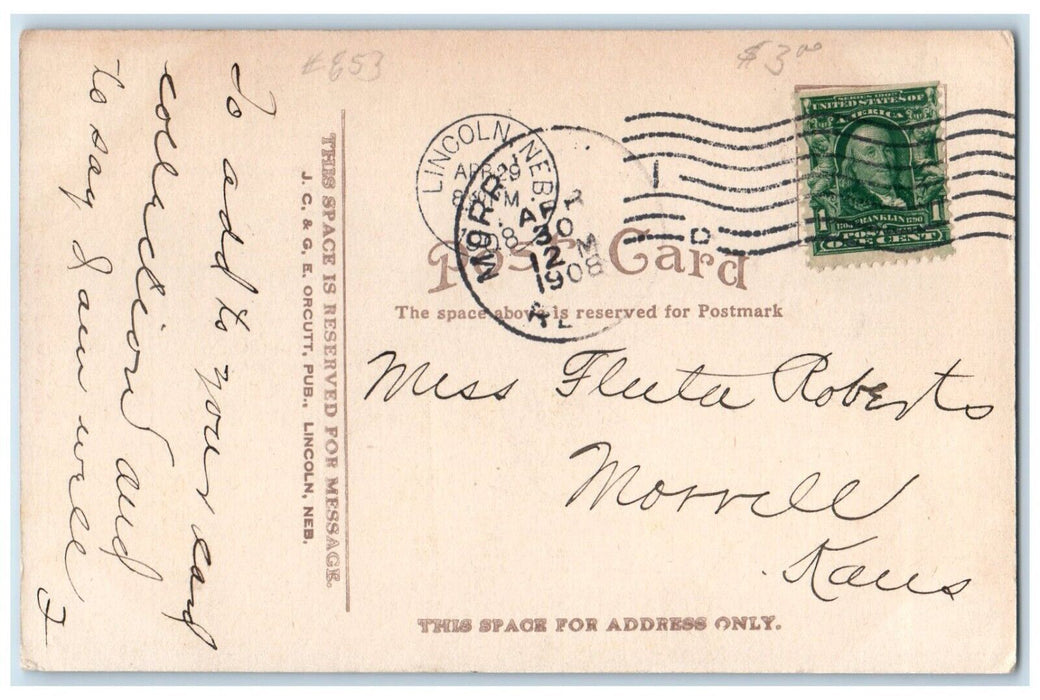 #853
$3.00
To add to your card
collection and
to say I am well
J
THIS SPACE IS RESERVED FOR MESSAGE.
J. C. & G. E. ORCUTT, PUB., LINCOLN, NEB.
LINCOLN, NEB.
APR 29
8 PM
1908
MORR
APR
30
12 M
1908
1
D
SERIES 1902
UNITED STATES OF
AMERICA
1706 FRANKLIN 1790
1 POSTAGE 1
ONE CENT
Post Card
The space above is reserved for Postmark
Miss Fleeta Roberts
Morrill
Kans
THIS SPACE FOR ADDRESS ONLY.